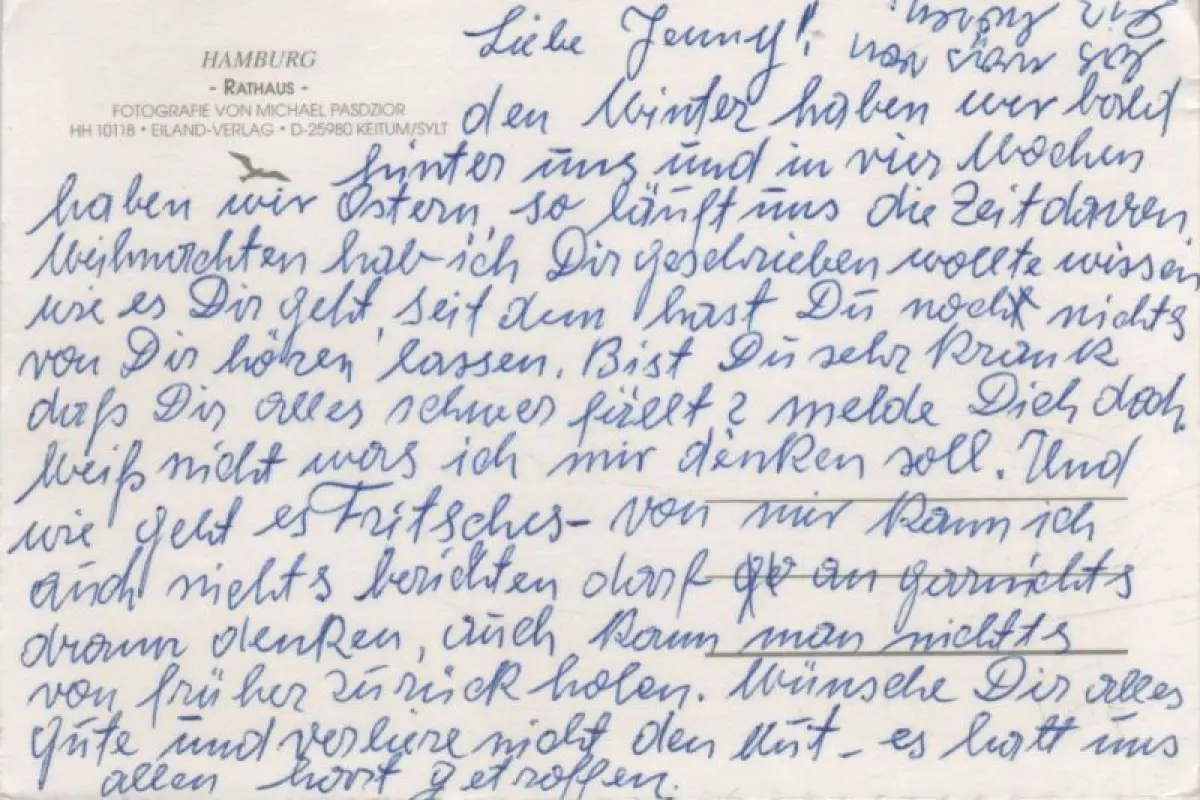 HAMBURG
- RATHAUS -
FOTOGRAFIE VON MICHAEL PASDZIOR
HH 10118 • EILAND-VERLAG • D-25980 KEITUM/SYLT
Liebe Jenny!
den Winter haben wir bald
hinter uns und in vier Wochen
haben wir Ostern, so läuft uns die Zeit davon.
Weihnachten hab ich Dir geschrieben wollte wissen
wie es Dir geht, seit dem hast Du noch nichts
von Dir hören lassen. Bist Du sehr krank
daß Dir alles schwer fällt? melde Dich doch.
Weiß nicht was ich mir denken soll. Und
wie geht es Fritsches - von mir kann ich
auch nichts berichten darf an garnichts
dran denken, auch kann man nichts
von früher zurück holen. Wünsche Dir alles
Gute und verliere nicht den Mut - es hatt uns
allen hart getroffen.